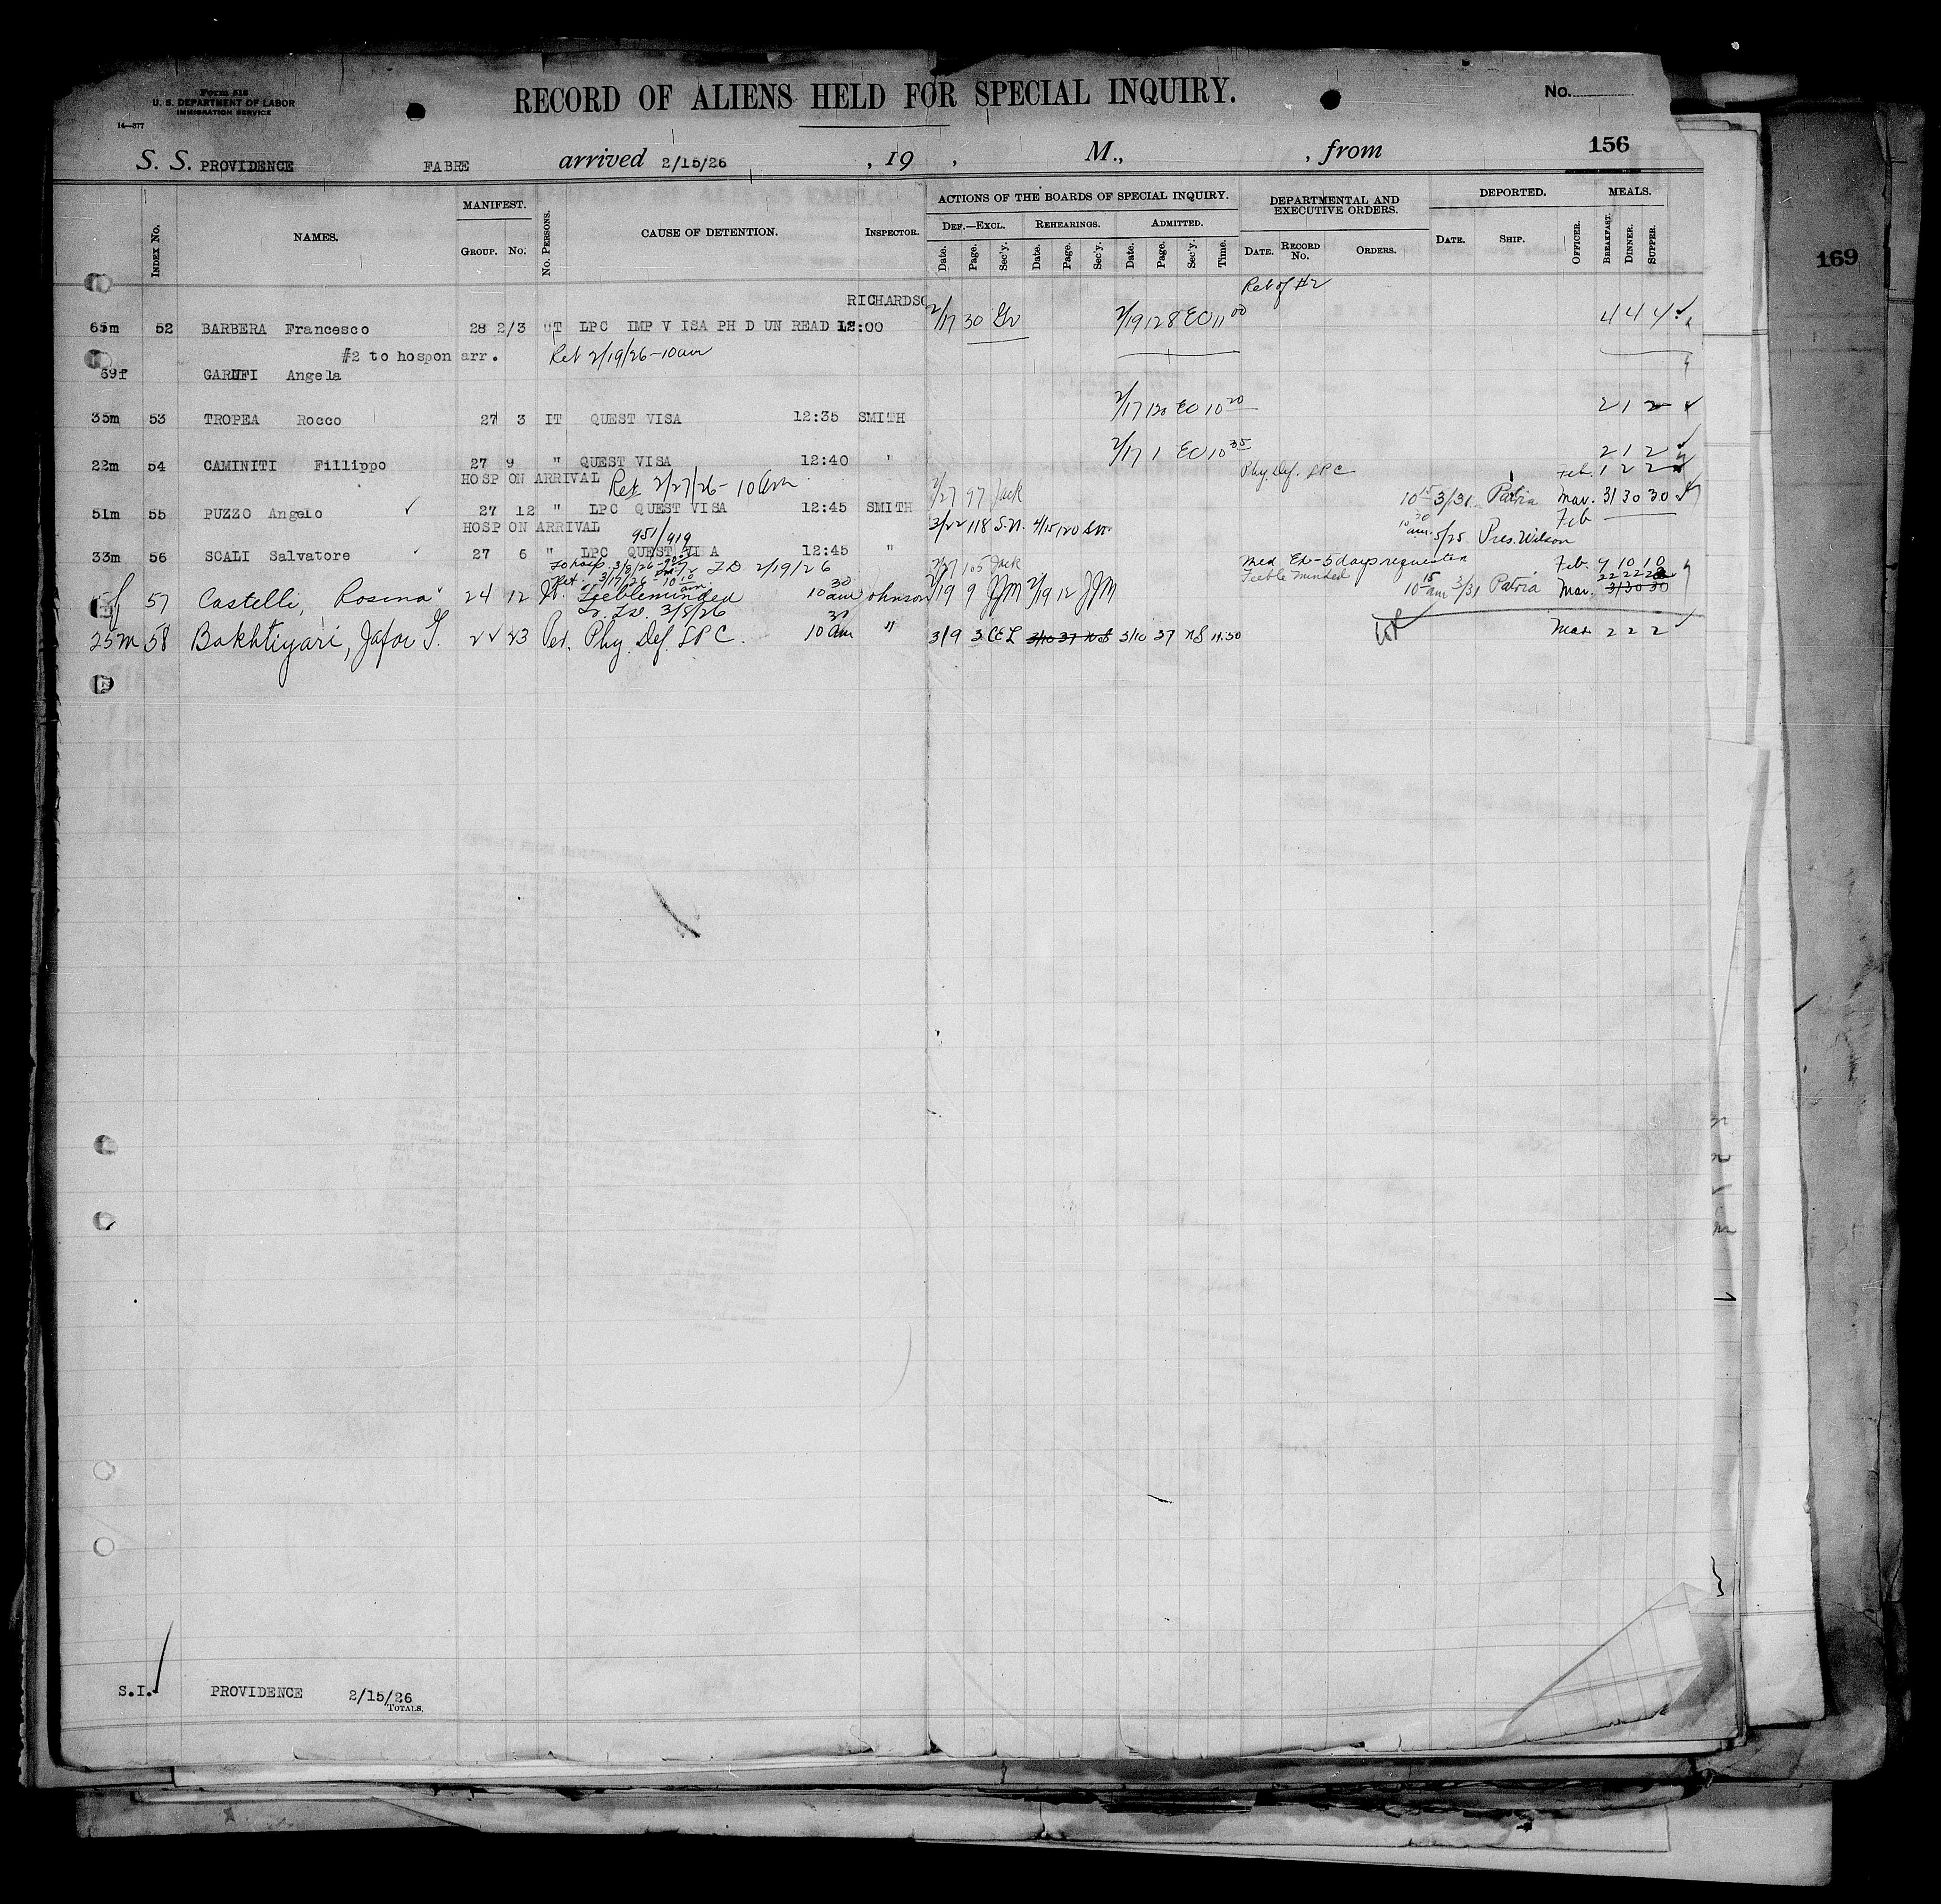 Form 518
U. S. DEPARTMENT OF LABOR
IMMIGRATION SERVICE
14—377
RECORD OF ALIENS HELD FOR SPECIAL INQUIRY.
No.
156
169
S. S. PROVIDENCE FABRE arrived 2/15/26 , 19 , M., , from
INDEX NO. NAMES. MANIFEST. GROUP. NO. NO. PERSONS. CAUSE OF DETENTION. INSPECTOR. ACTIONS OF THE BOARDS OF SPECIAL INQUIRY. DEF.—EXCL. Date. Page. Sec'y. REHEARINGS. Date. Page. Sec'y. ADMITTED. Date. Page. Sec'y. Time. DEPARTMENTAL AND EXECUTIVE ORDERS. DATE. RECORD NO. ORDERS. DEPORTED. DATE. SHIP. OFFICER. MEALS. BREAKFAST. DINNER. SUPPER.
Ret of #2
RICHARDSO
65m 52 BARBERA Francesco 28 2/3 LPC IMP V ISA PH D UN READ 12:00 2/17 30 Gv 2/19 128 EO 11 00 4 4 4
#2 to hospon arr. Ret 2/19/26-10am
59f GARUFI Angela
35m 53 TROPEA Rocco 27 3 IT QUEST VISA 12:35 SMITH 2/17 120 EO 10 20 2 1 2
22m 54 CAMINITI Fillippo 27 9 " QUEST VISA 12:40 " 2/17 1 EO 10 35 2 1 2
HOSP ON ARRIVAL Ret 2/27/26- 10am Phy. Def. LPC Feb. 1 2 2
51m 55 PUZZO Angelo 27 12 " LPC QUEST VISA 12:45 SMITH 2/27 97 Jack 10 15 3/31 Patria Mar. 31 30 30
HOSP ON ARRIVAL 951/919 3/22 118 S.N. 4/15 120 10 30 am 5/25 Pres. Wilson Feb
33m 56 SCALI Salvatore 27 6 " LPC QUEST VISA 12:45 " 2/27 105 Jack Med Ex-5 days requested Feb. 9 10 10
To hosp. 3/8/26 TD 2/19/26
Ret. 3/17/26 10 10 am. Feeble minded 22 22 22
57 Castelli, Rosina 24 12 It. Feebleminded 10 30 am Johnson 2/19 9 JJM 2/19 12 JJM 10 15 am 3/31 Patria Mar. 31 30 30
3/8/26
25m 58 Bakhtiyari, Jafar T. 23 Per. Phy. Def. LPC. 10 30 am " 3/9 3 CEL 3/10 37 NS 3/10 37 NS 11:30 Mar 2 2 2
S.I. PROVIDENCE 2/15/26
TOTALS.